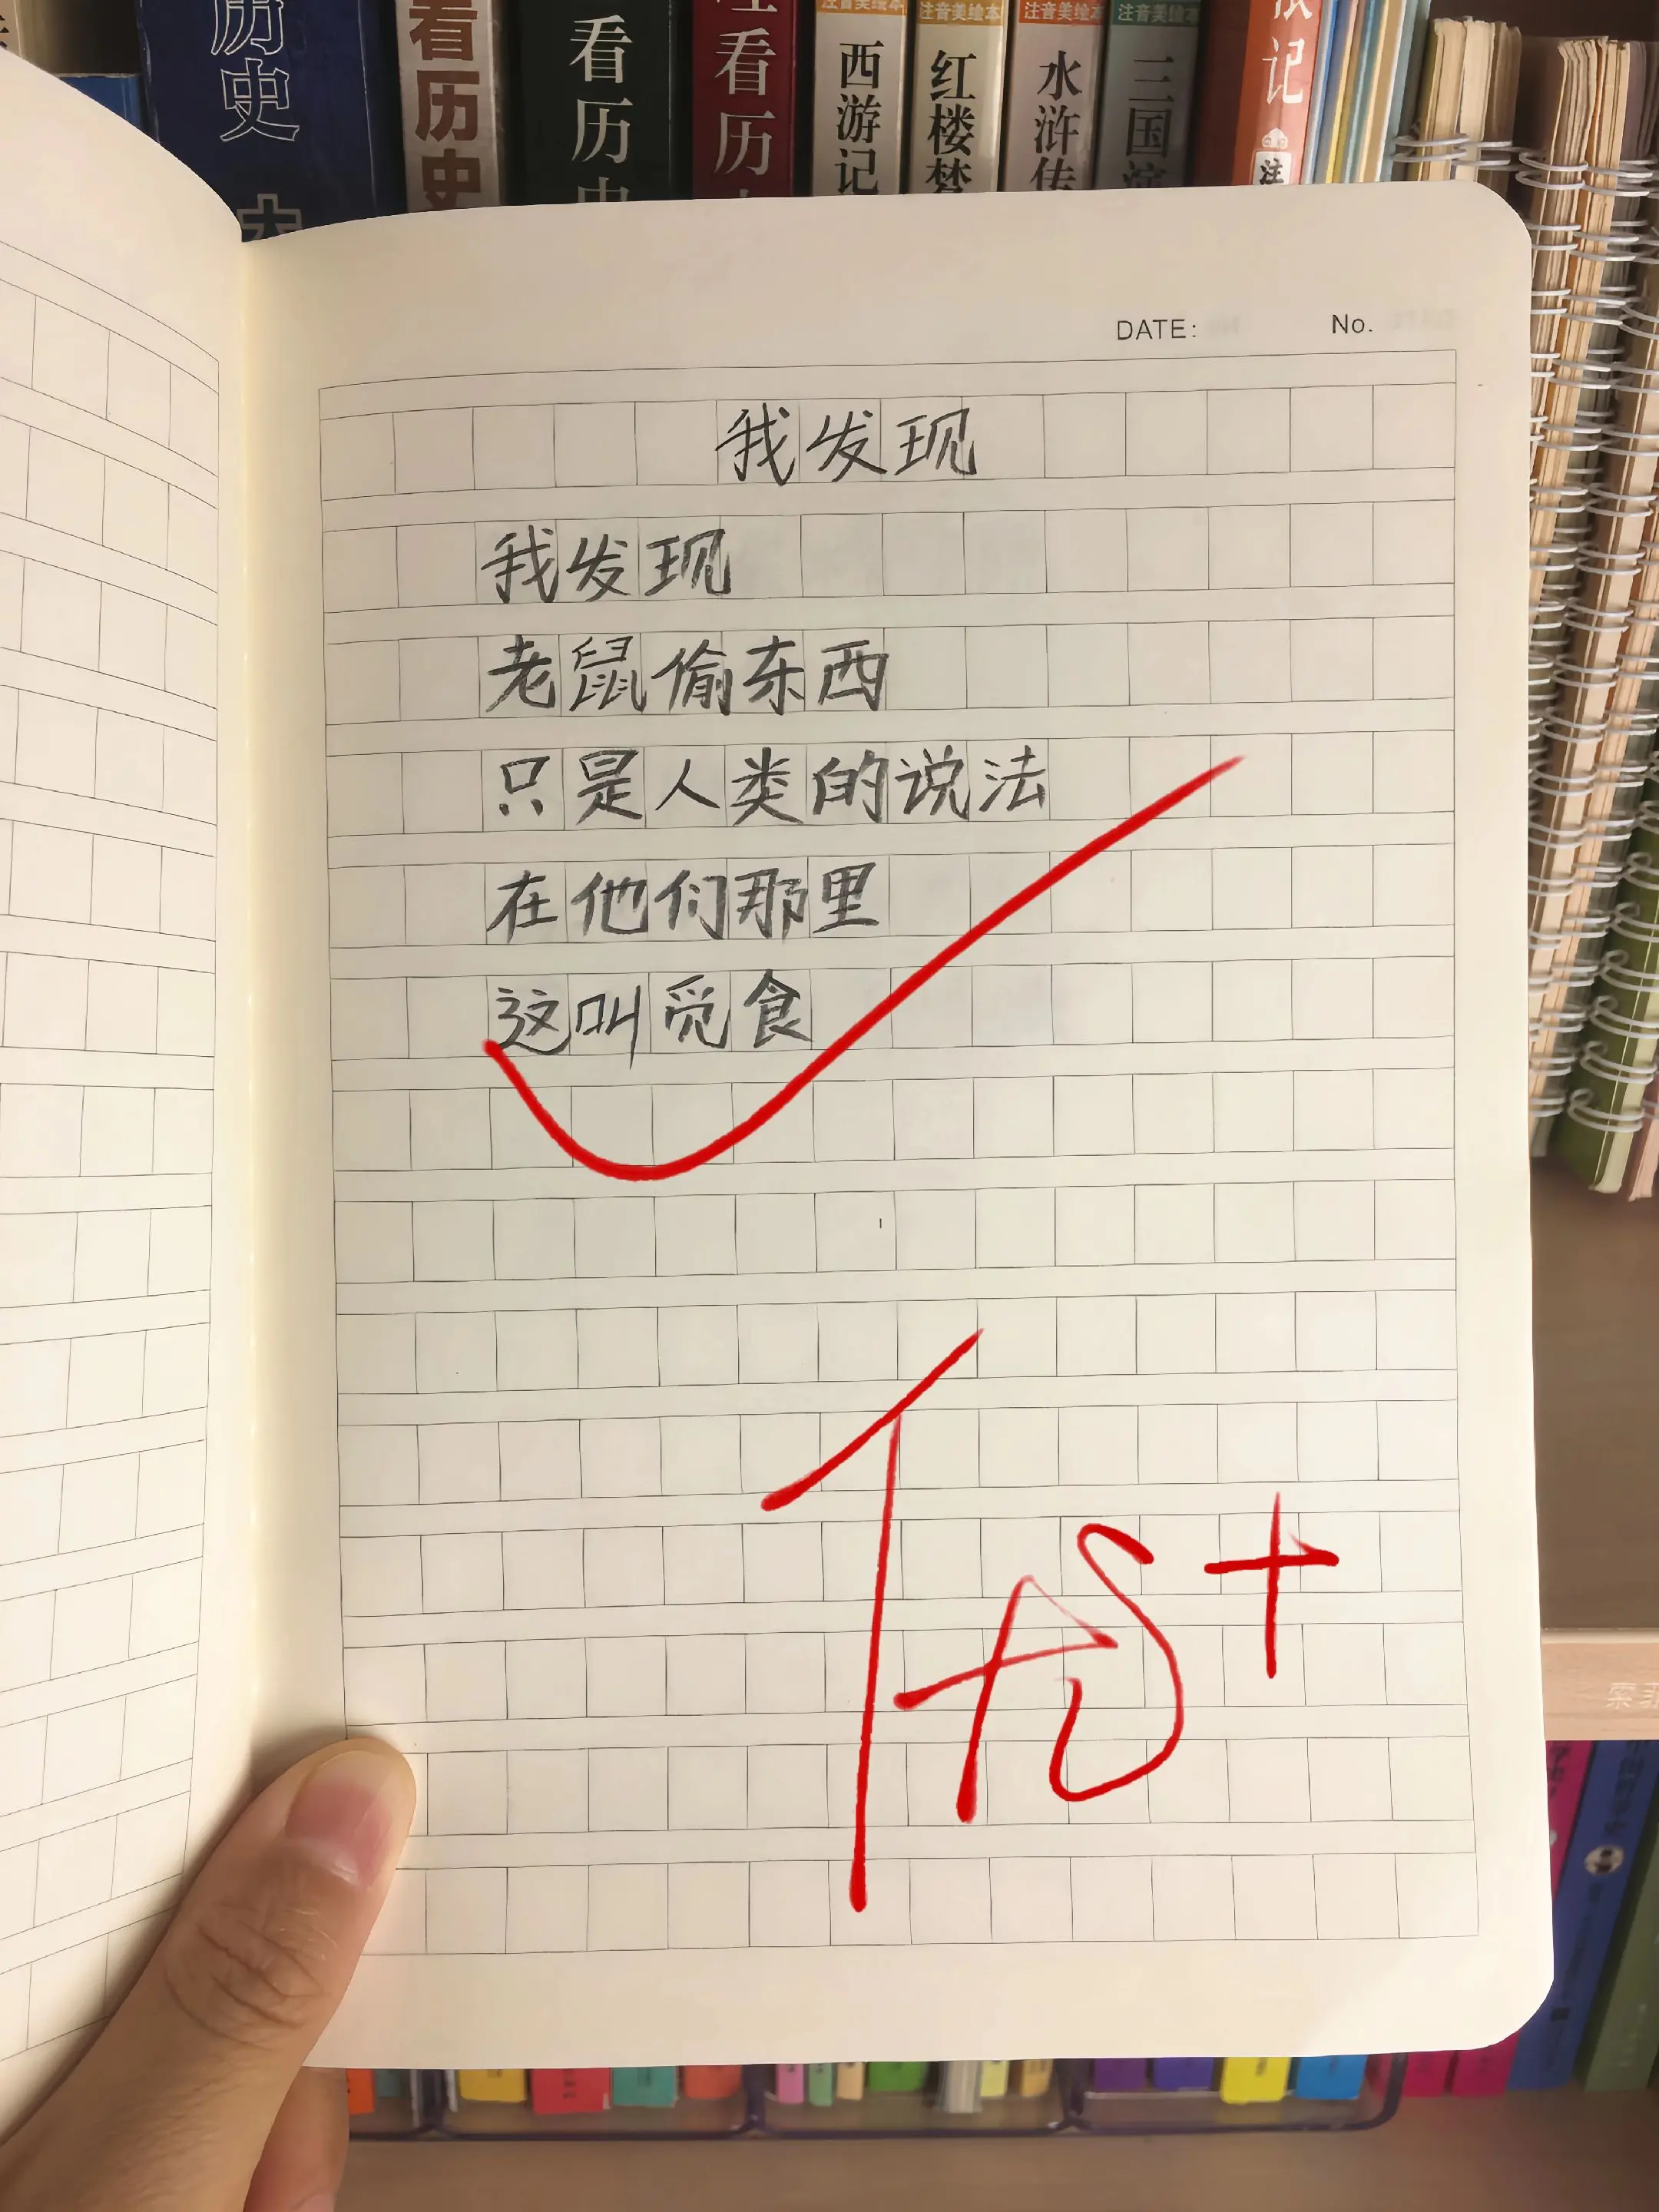 历史
看历史
看历史
看历
注音美绘本
西游记
注音美绘本
红楼梦
注音美绘本
水浒传
注音美绘本
三国演
记
注
DATE: No.
我发现
我发现
老鼠偷东西
只是人类的说法
在他们那里
这叫觅食
优+